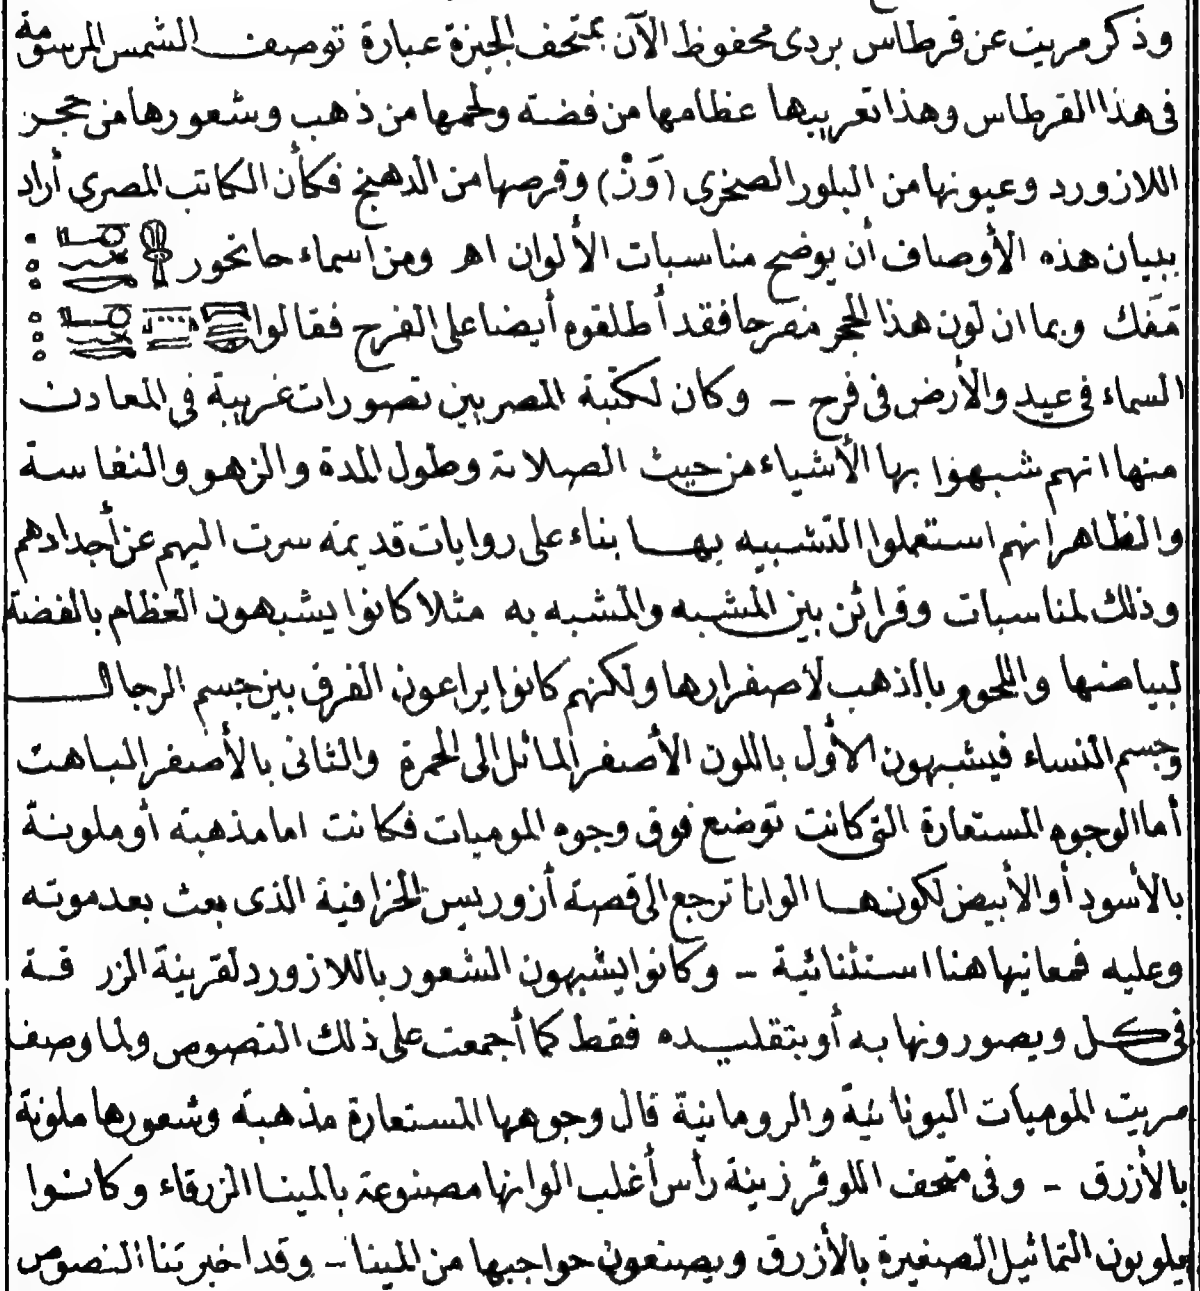 وذكر مريت عن قرطاس بردى محفوظ الآن بمتحف الجيزة عبارة توصف الشمس المرسومة
فى هذا القرطاس وهذا تعريبها عظامها من فضة ولحمها من ذهب وشعورها من حجر
اللازورد وعيونها من البلور الصخرى (وَنْ) وقرصها من الدهنج فكأن الكاتب المصرى أراد
ببيان هذه الأوصاف أن يوضح مناسبات الألوان اهـ ومن أسماء حاتحور
مَفَك وبما ان لون هذا الحجر مفرحا فقد أطلقوه أيضا على الفرح فقالوا
السماء فى عيد والأرض فى فرح - وكان لكتبة المصريين تصورات غريبة فى المعادن
منها انهم شبهوا بها الأشياء من حيث الصلابة وطول المدة والزهو والنفاسة
والظاهر انهم استعملوا التشبيه بها بناء على روايات قديمة سرت اليهم عن أجدادهم
وذلك لمناسبات وقرائن بين المشبه والمشبه به مثلا كانوا يشبهون العظام بالفضة
لبياضها واللحوم بالذهب لاصفرارها ولكنهم كانوا يراعون الفرق بين جسم الرجال
وجسم النساء فيشبهون الأول باللون الأصفر المائل الى الحمرة والثانى بالأصفر الباهت
أما الوجوه المستعارة التى كانت توضع فوق وجوه الموميات فكانت اما مذهبة أو ملونة
بالأسود أو الأبيض لكونها الوانا ترجع الى قصة أزوريس الخرافية الذى بعث بعد موته
وعليه فمعانيها هنا استثنائية - وكانوا يشبهون الشعور باللازورد لقرينة الزرقة
فى كل ويصورونها به أو بتقليده فقط كما أجمعت على ذلك النصوص ولما وصف
مريت الموميات اليونانية والرومانية قال وجوهها المستعارة مذهبة وشعورها ملونة
بالأزرق - وفى متحف اللوفر زينة رأس أغلب الوانها مصنوعة بالمينا الزرقاء وكانوا
يلونون التماثيل الصغيرة بالأزرق ويصنعون حواجبها من المينا - وقد اخبرتنا النصوص